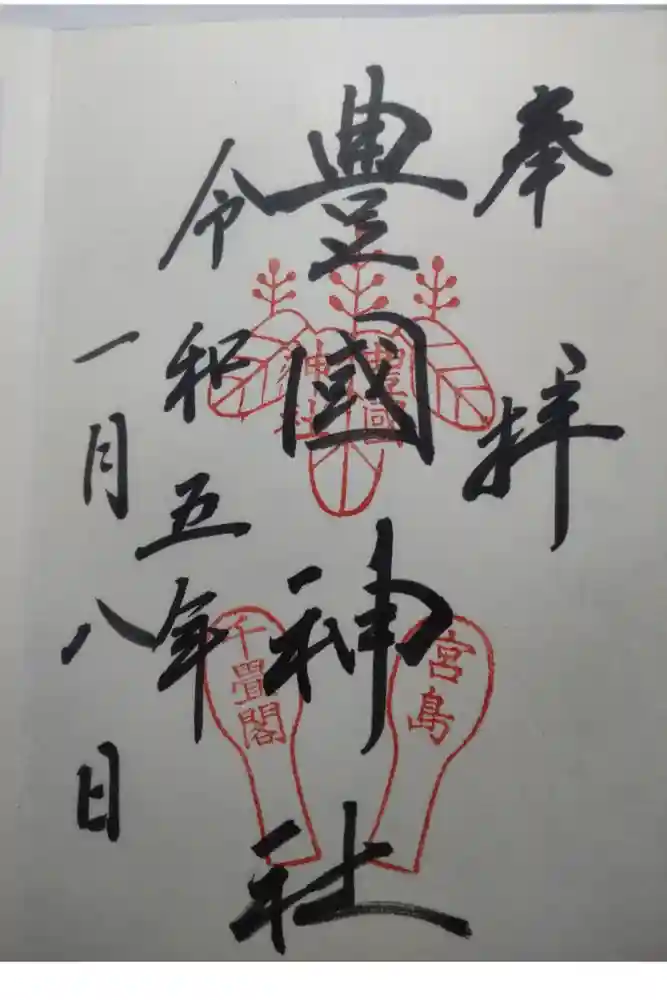 奉拝
豊國神社
令和五年
一月八日
豊国
神社
宮島
千畳閣